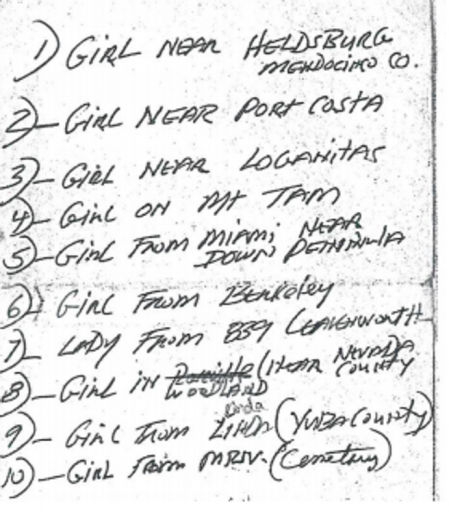 1) GIRL NEAR HELDSBURG
MENDOCINO CO.
2)—GIRL NEAR PORT COSTA
3)—GIRL NEAR LOGANITAS
4)—GIRL ON MT TAM
5)—GIRL FROM MIAMI NEAR
DOWN PENINNULA
6) GIRL FROM Berkeley
7)—LADY FROM 839 LEAVENWORTH
8)—GIRL IN (NEAR NEVADA
COUNTY
WOODLAND
Linda
9)—GIRL FROM LINDA (YUBA COUNTY)
10)—GIRL FROM MRSV. (Cemetary)